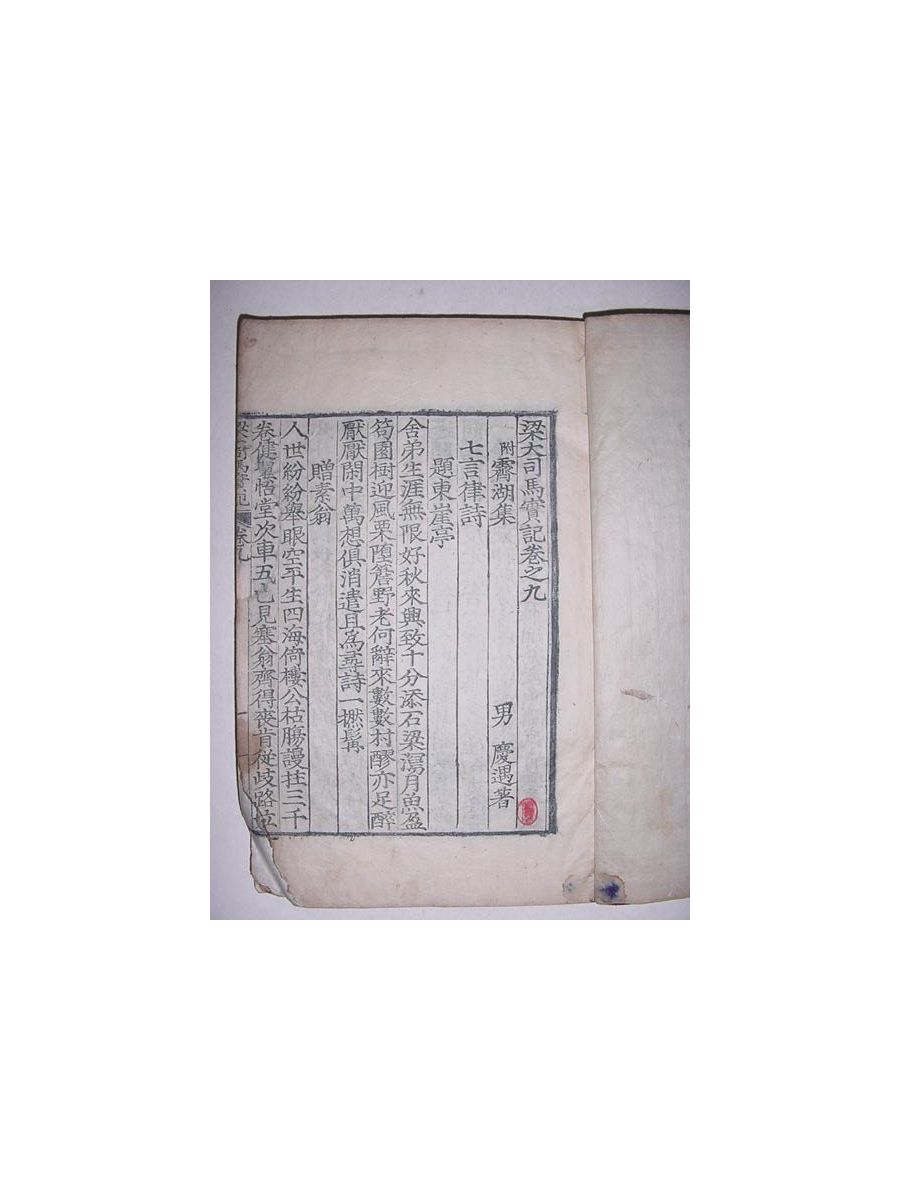 梁大司馬實記卷之九
附霽湖集 男 慶遇著
七言律詩
題東崖亭
舍弟生涯無限好秋來興致十分添石梁瀉月魚盈
笱園樹迎風栗墮簷野老何辭來數數村醪亦足醉
厭厭閑中萬想俱消遣且爲尋詩一撚髯
贈素翁
人世紛紛擧眼空平生四海倚樓公枯腸謾拄三千
卷健筆悟堂次車五已見塞翁齊得喪肯從歧路泣
梁大司馬實記 卷九